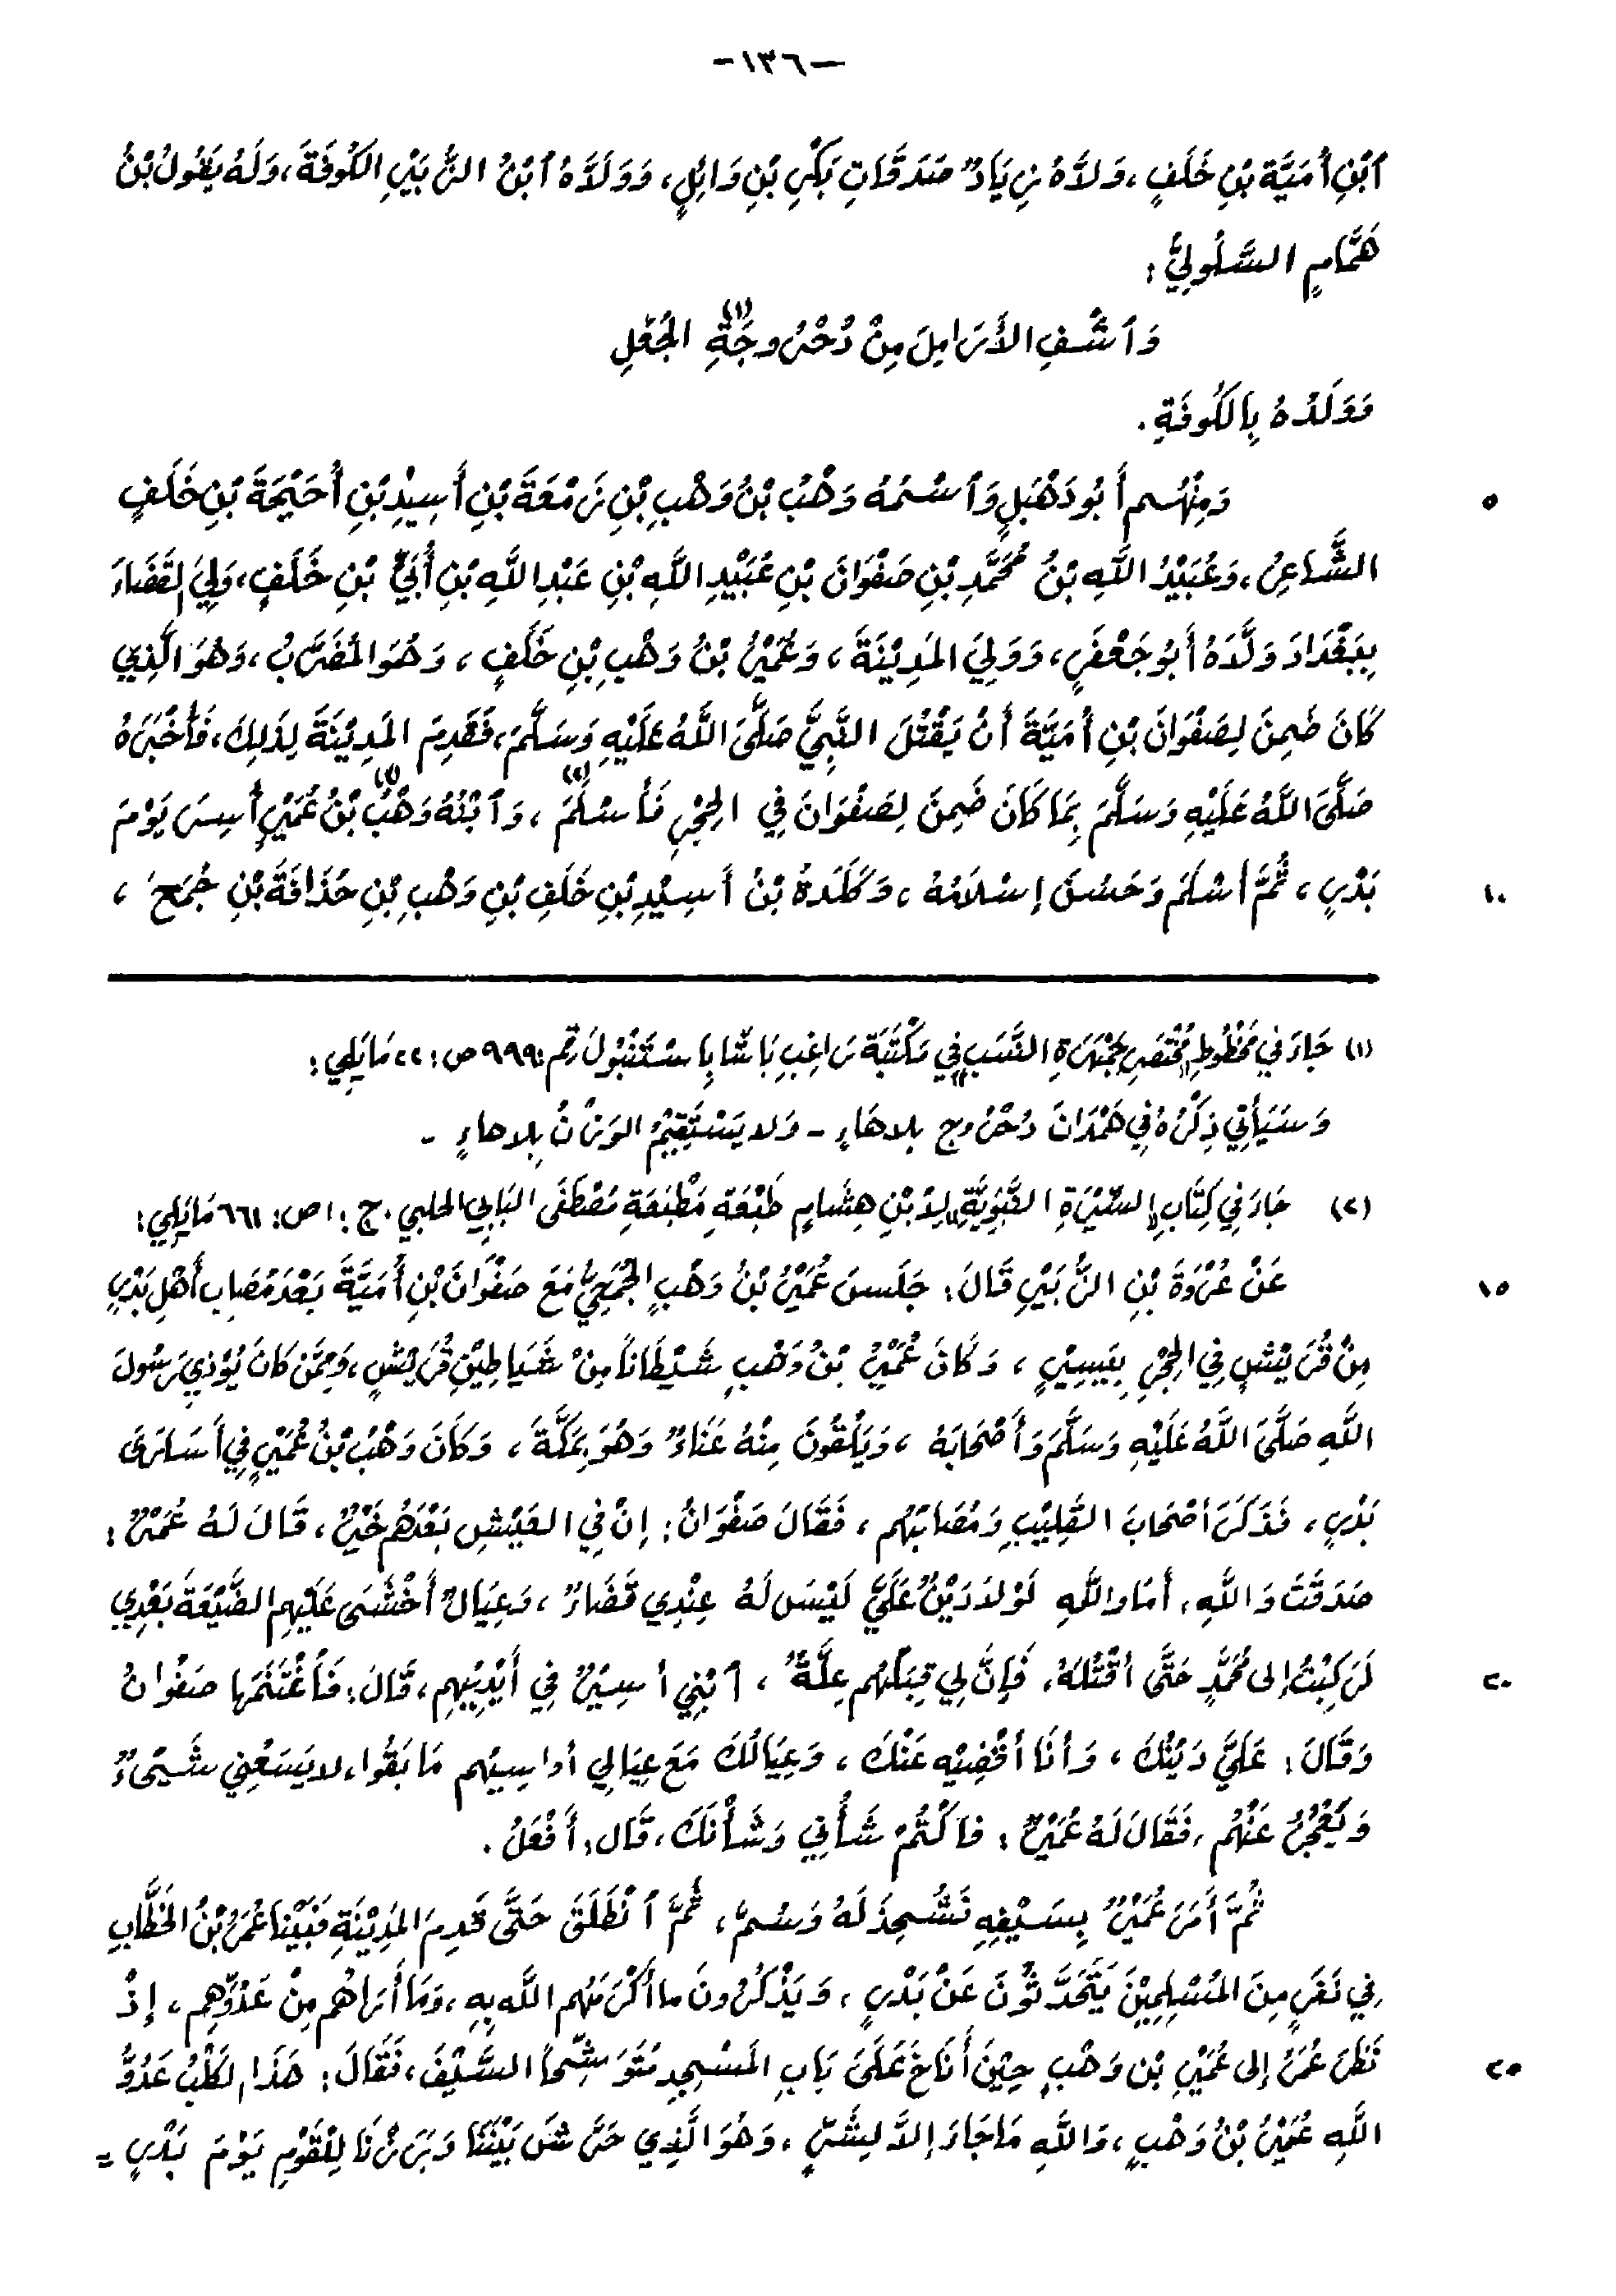 -١٣٦-
ٱبْنِ أُمَيَّةَ بْنِ خَلَفٍ، وَلَّاهُ زِيَادٌ صَدَقَاتِ بَكْرِ بْنِ وَائِلٍ، وَوَلَّاهُ ٱبْنُ الزُّبَيْرِ الكُوفَةَ، وَلَهُ يَقُولُ بْنُ
هَمَّامٍ السَّلُولِيُّ:
وَٱشْفِ الأَرَامِلَ مِنْ دُحْرُوجَةِ (١) الجُعَلِ
وَوَلَدُهُ بِالكُوفَةِ.
٥ وَمِنْهُم أَبُو دَهْبَلٍ وَٱسْمُهُ وَهْبُ بْنُ وَهْبِ بْنِ زَمْعَةَ بْنِ أَسِيْدِ بْنِ أُحَيْحَةَ بْنِ خَلَفٍ
الشَّاعِرُ، وَعُبَيْدُ اللَّهِ بْنُ مُحَمَّدِ بْنِ صَفْوَانَ بْنِ عُبَيْدِ اللَّهِ بْنِ عَبْدِ اللَّهِ بْنِ أُبَيِّ بْنِ خَلَفٍ، وَلِيَ القَضَاءَ
بِبَغْدَادَ وَلَّاهُ أَبُو جَعْفَرٍ، وَوَلِيَ المَدِيْنَةَ، وَعُمَيْرُ بْنُ وَهْبِ بْنِ خَلَفٍ، وَهُوَ المُضَرَّبُ، وَهُوَ الَّذِي
كَانَ ضَمِنَ لِصَفْوَانَ بْنِ أُمَيَّةَ أَنْ يَقْتُلَ النَّبِيَّ صَلَّى اللَّهُ عَلَيْهِ وَسَلَّمَ، فَقَدِمَ المَدِيْنَةَ لِذَلِكَ، فَأَخْبَرَهُ
صَلَّى اللَّهُ عَلَيْهِ وَسَلَّمَ بِمَا كَانَ ضَمِنَ لِصَفْوَانَ فِي الحِجْرِ فَأَسْلَمَ (٢)، وَٱبْنُهُ وَهْبُ (٢) بْنُ عُمَيْرٍ أُسِرَ يَوْمَ
١٠ بَدْرٍ، ثُمَّ أَسْلَمَ وَحَسُنَ إِسْلَامُهُ، وَكَلَدَةُ بْنُ أَسِيْدِ بْنِ خَلَفِ بْنِ وَهْبِ بْنِ حُذَافَةَ بْنِ جُمَحَ،
(١) جَاءَ فِي مَخْطُوطِ «مُخْتَصَرِ جَمْهَرَةِ النَّسَبِ» فِي مَكْتَبَةِ رَاغِب بَاشَا بِاسْتَنْبُولَ رقم: ٩٩٩ ص: ٢٢ مَا يَلِي:
وَسَيَأْتِي ذِكْرُهُ فِي هَمْدَانَ دُحْرُوج بِلا هَاءٍ - وَلا يَسْتَقِيْمُ الوَزْنُ بِلا هاءٍ -
(٢) جَاءَ فِي كِتَابِ «السِّيْرَةِ النَّبَوِيَّةِ» لِابْنِ هِشَامٍ طَبْعَةِ مَطْبَعَةِ مُصْطَفَى البَابِي الحلبي. ج: ١ ص: ٦٦١ مَا يَلِي:
١٥ عَنْ عُرْوَةَ بْنِ الزُّبَيْرِ قَالَ: جَلَسَ عُمَيْرُ بْنُ وَهْبٍ الجُمَحِيُّ مَعَ صَفْوَانَ بْنِ أُمَيَّةَ بَعْدَ مُصَابِ أَهْلِ بَدْرٍ
مِنْ قُرَيْشٍ فِي الحِجْرِ بِيَسِيْرٍ، وَكَانَ عُمَيْرُ بْنُ وَهْبٍ شَيْطَانًا مِنْ شَيَاطِيْنِ قُرَيْشٍ، وَمِمَّنْ كَانَ يُؤْذِي رَسُولَ
اللَّهِ صَلَّى اللَّهُ عَلَيْهِ وَسَلَّمَ وَأَصْحَابَهُ، وَيَلْقَونَ مِنْهُ عَنَاءً وَهُوَ بِمَكَّةَ، وَكَانَ وَهْبُ بْنُ عُمَيْرٍ فِي أسَارَى
بَدْرٍ، فَذَكَرَ أصْحَابَ القَلِيْبِ وَمُصَابَهُم، فَقَالَ صَفْوَانُ: إنْ فِي العَيْشِ بَعْدَهُم خَيْرٌ، قَالَ لَهُ عُمَيْرٌ:
صَدَقْتَ وَاللَّهِ، أمَا واللَّهِ لَوْلا دَيْنٌ عَلَيَّ لَيْسَ لَهُ عِنْدِي قَضَاءٌ، وَعِيَالٌ أَخْشَى عَلَيْهِم الضَّيْعَةَ بَعْدِي
٢٠ لَرَكِبْتُ إلى مُحَمَّدٍ حَتَّى أقْتُلَهُ، فَإِنَّ لِي قِبَلَهُم عِلَّةً، ٱبْنِي أسِيْرٌ فِي أَيْدِيْهِم، قَالَ: فَاغْتَنَمَها صَفْوانُ
وَقَالَ: عَلَيَّ دَيْنُكَ، وَأنَا أقْضِيْهِ عَنْكَ، وَعِيَالُكَ مَعَ عِيَالِي أواسِيْهِم مَا بَقُوا، لا يَسَعُنِي شَيْءٌ
وَيَعْجُزُ عَنْهُم، فَقَالَ لَهُ عُمَيْرٌ: فاكْتُمْ شَأْنِي وَشَأْنَكَ، قَال: أَفْعَلُ.
ثُمَّ أَمَرَ عُمَيْرٌ بِسَيْفِهِ فَشُحِذَ لَهُ وَسُمَّ، ثُمَّ ٱنْطَلَقَ حَتَّى قَدِمَ المَدِيْنَةِ فَبَيْنَا عُمَرُ بْنُ الخَطَّابِ
فِي نَفَرٍ مِنَ المُسْلِمِيْنَ يَتَحَدَّثُونَ عَنْ بَدْرٍ، وَيَذْكُرُونَ ما أكْرَمَهُم اللَّه بِهِ، وَمَا أَرَاهُم مِنْ عَدُوِّهِم، إِذْ
٢٥ نَظَرَ عُمَرُ إلى عُمَيْرِ بْنِ وَهْبٍ حِيْنَ أَنَاخَ عَلَى بَابِ المَسْجِدِ مُتَوَشِّحاً السَّيْفَ، فَقَالَ: هَذَا الكَلْبُ عَدُوُّ
اللَّهِ عُمَيْرُ بْنُ وَهْبٍ، وَاللَّهِ مَا جَاءَ إلَّا لِشَرٍّ، وَهُوَ الَّذِي حَرَّشَ بَيْنَنَا وَحَزَرَنَا لِلْقَوْمِ يَوْمَ بَدْرٍ =